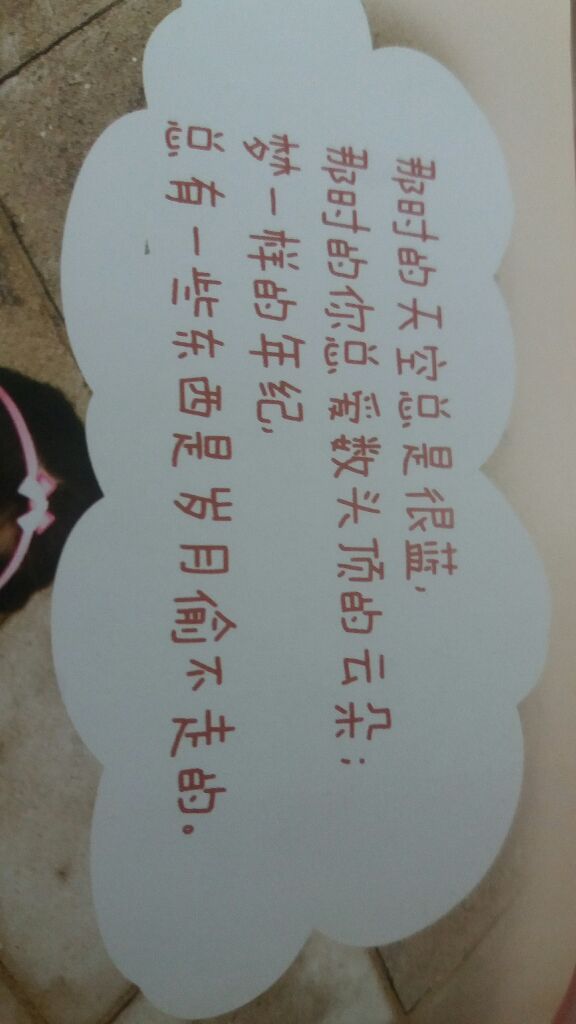 那时的天空总是很蓝，
那时的你总爱数头顶的云朵；
梦一样的年纪，
总有一些东西是岁月偷不走的。